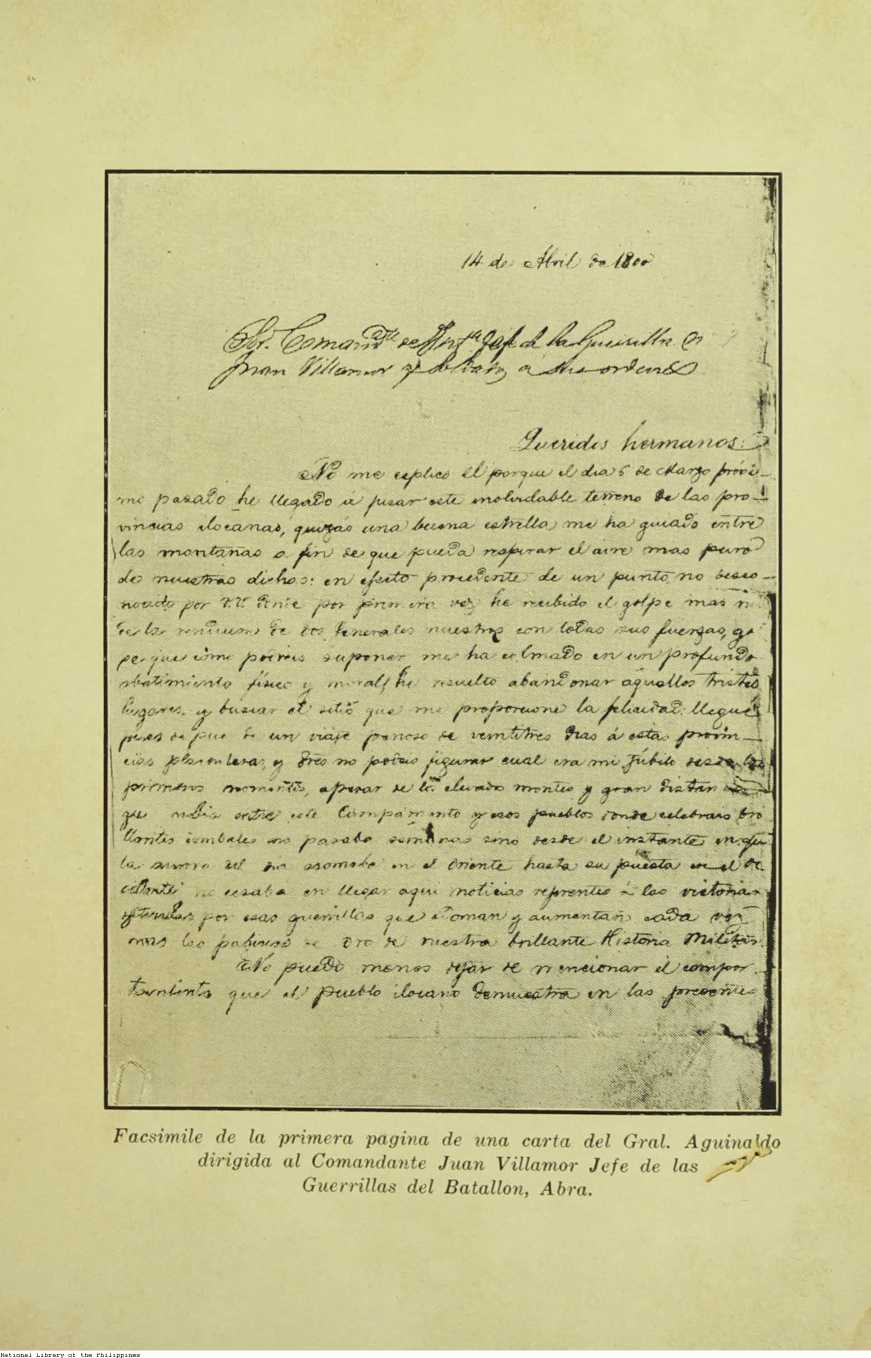 14 de Abril de 1800
Sr. Comand.te de Inf.a Jefe de la Guerrilla D.
Juan Villamor y a sus ordenes
Queridos hermanos:
No me esplico el porque el dia 5 de Marzo próxi-
mo pasado he llegado á pisar este inolvidable terreno de las pro-
vincias ilocanas, quizas una buena estrella me ha guiado entre
las montañas a fin de que pueda respirar el aire mas puro
de nuestras dichas: en efecto procedente de un punto no desco-
nocido por V.V. donde por primera vez he recibido el golpe mas
de la rendicion de dos Generales nuestros con todas sus fuerzas, gol
pe que cómo podreis suponer me ha colmado en un profundo
abatimiento fisico y moral, he resuelto abandonar aquellos tristes
lugares, y buscar el sitio que me proporcione la felicidad: llegué
pues despues de un viaje penoso de veintitres dias á estas provin-
cias placenteras, y no podeis figurar cual era mi júbilo desde los
primeros momentos, apesar de los elevados montes y gran distancia
que media entre este Campamento y esos pueblos donde celebrais bri
llantes combates no pasaba semanas sino desde el instante en que
la aurora del dia asomaba en el Oriente hasta su puesta en el Oc
cidente no cesaba en llegar aqui noticias referentes á las victorias
por esas guerrillas que toman y aumentan cada vez
mas las paginas de oro de nuestra brillante Historia Militar.
No puedo menos dejar de mencionar el compor-
tamiento que el pueblo ilocano demuestra en las presentes
Facsimile de la primera pagina de una carta del Gral. Aguinaldo
dirigida al Comandante Juan Villamor Jefe de las
Guerrillas del Batallon, Abra.
National Library of the Philippines